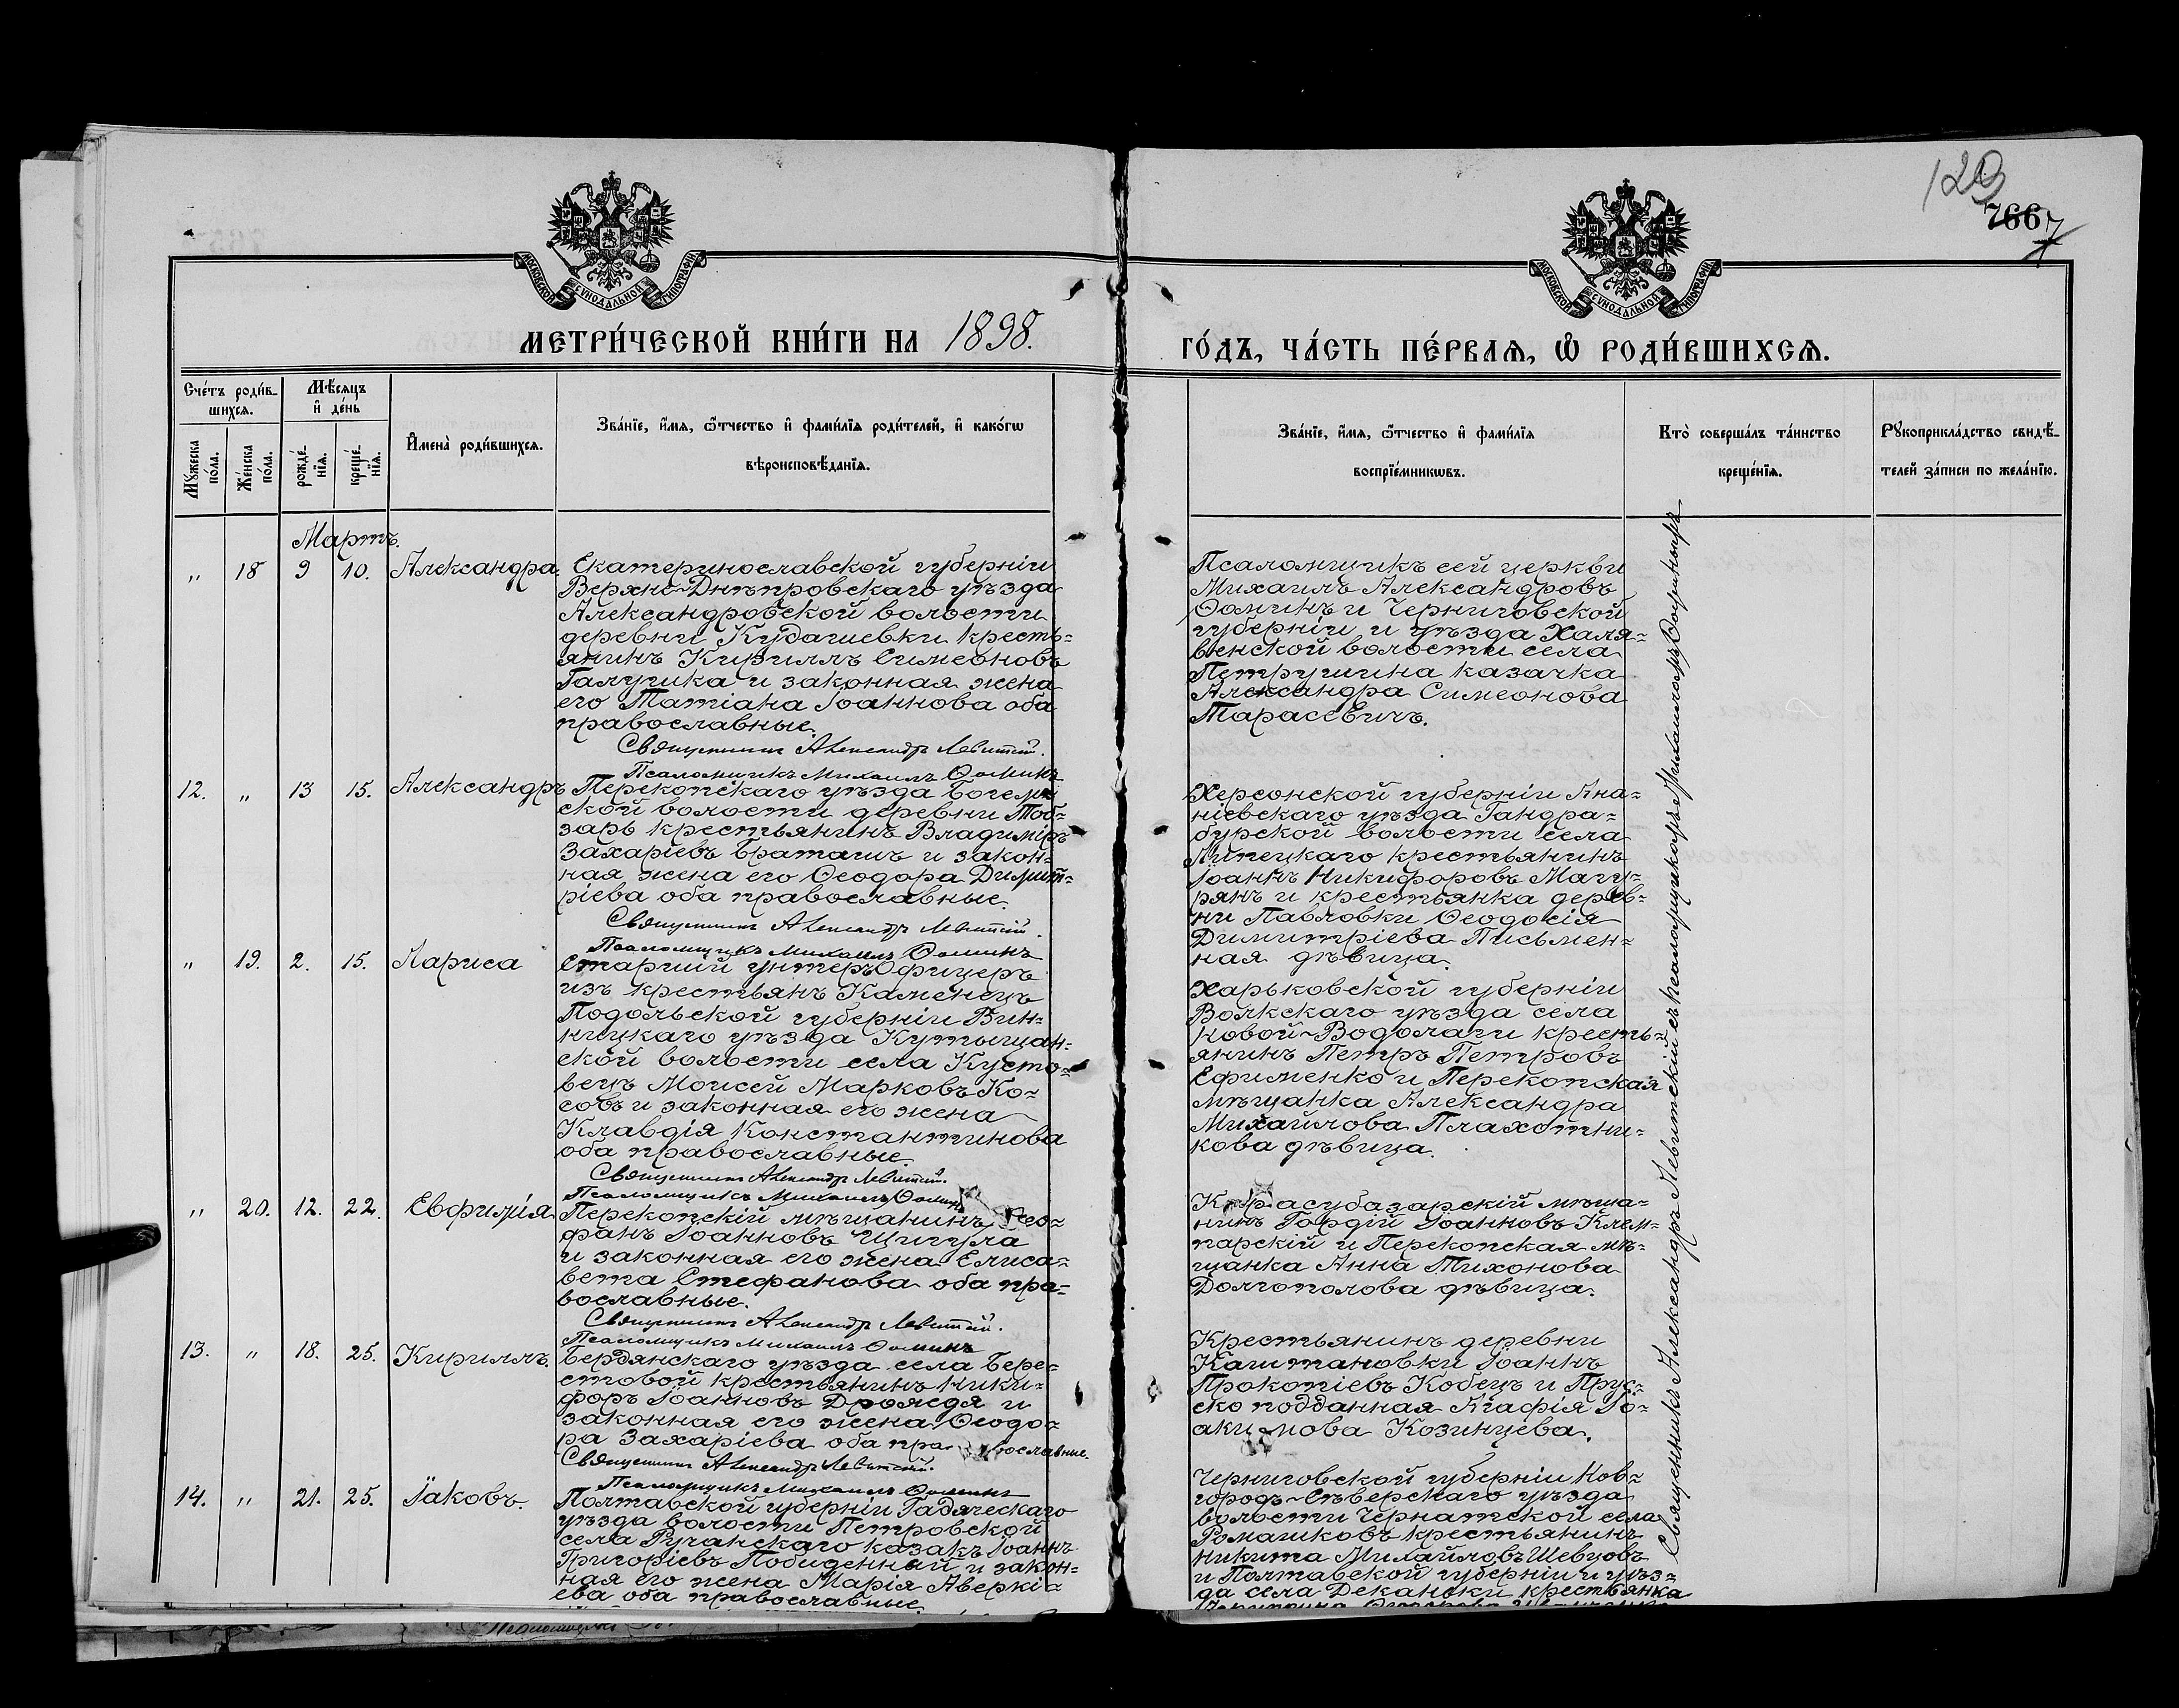 123
7667
МОСКОВСКОЙ СѴНОДАЛЬНОЙ ТИПОГРАФІИ
МОСКОВСКОЙ СѴНОДАЛЬНОЙ ТИПОГРАФІИ
МЕТРИ́ЧЕСКОЙ КНИ́ГИ НА 1898.
ГО́ДЪ, ЧА́СТЬ ПЕ́РВАѦ, Ѡ҆ РОДИ́ВШИХСѦ.
Сче́тъ роди́в-
шихсѧ.
Мꙋ́жеска
по́ла.
Же́нска
по́ла.
Мѣ́сѧцъ
и҆ де́нь
рожде́-
нїѧ.
креще́-
нїѧ.
И҆мена̀ роди́вшихсѧ.
Зва́нїе, и҆́мѧ, ѻ҆́тчество и҆ фами́лїѧ роди́телей, и҆ како́гѡ
вѣроисповѣ́данїѧ.
Зва́нїе, и҆́мѧ, ѻ҆́тчество и҆ фами́лїѧ
воспрїе́мникѡвъ.
Кто̀ соверша́лъ та́инство
креще́нїѧ.
Рꙋкоприкла́дство свидѣ́-
телей за́писи по жела́нїю.
Мартъ.
„ 18 9 10. Александра.
Екатеринославской губерніи
Верхне-Днѣпровскаго уѣзда
Александровской волости
деревни Кудашевки кресть-
янинъ Кириллъ Симеоновъ
Галушка и законная жена
его Татіана Іоаннова оба
православные.
Священникъ Александръ Левитскій.
Псаломщикъ Михаилъ Ѳоминъ
Псаломщикъ сей церкви
Михаилъ Александровъ
Ѳоминъ и Черниговской
губерніи и уѣзда Халя-
венской волости села
Петрушина казачка
Александра Симеонова
Тарасевичъ.
12. „ 13 15. Александръ
Перекопскаго уѣзда Богем-
ской волости деревни Тоб-
зарь крестьянинъ Владиміръ
Захаріевъ Браташъ и закон-
ная жена его Ѳеодора Димит-
ріева оба православные.
Священникъ Александръ Левитскій.
Псаломщикъ Михаилъ Ѳоминъ
Херсонской губерніи Ана-
ніевскаго уѣзда Гандра-
бурской волости села
Липецкаго крестьянинъ
Іоаннъ Никифоровъ Магу-
рянъ и крестьянка дерев-
ни Павловки Ѳеодосія
Димитріева Письмен-
ная дѣвица.
„ 19. 2. 15. Лариса
Старшій унтеръ Офицеръ
изъ крестьянъ Каменецъ
Подольской губерніи Вин-
ницкаго уѣзда Кутыщан-
ской волости села Кусто-
вецъ Моисей Марковъ Ко-
совъ и законная его жена
Клавдія Константинова
оба православные.
Священникъ Александръ Левитскій.
Псаломщикъ Михаилъ Ѳоминъ
Харьковской губерніи
Волкскаго уѣзда села
Новой-Водолаги кресть-
янинъ Петръ Петровъ
Ефименко и Перекопская
мѣщанка Александра
Михайлова Плахотни-
кова дѣвица.
„ 20. 12. 22. Евфимія.
Перекопскій мѣщанинъ Ѳео-
фанъ Іоанновъ Щигула
и законная его жена Елиса-
вета Стефанова оба пра-
вославные.
Священникъ Александръ Левитскій.
Псаломщикъ Михаилъ Ѳоминъ
Карасубазарскій мѣща-
нинъ Гордій Іоанновъ Клем-
парскій и Перекопская мѣ-
щанка Анна Тихонова
Долгополова дѣвица.
13. „ 18. 25. Кириллъ.
Бердянскаго уѣзда села Бере-
стовой крестьянинъ Ники-
форъ Іоанновъ Дрождя и
законная его жена Ѳеодо-
ра Захаріева оба православные.
Священникъ Александръ Левитскій.
Псаломщикъ Михаилъ Ѳоминъ
Крестьянинъ деревни
Каштановки Іоаннъ
Прокопіевъ Кобецъ и Прус-
ско подданная Агафія Іо-
акимова Козинцева.
14. „ 21. 25. Іаковъ.
Полтавской губерніи Гадяческаго
уѣзда волости Петровской
села Ручанскаго казакъ Іоаннъ
Григоріевъ Побиденный и закон-
ная его жена Марія Аверкі-
ева оба православные
Черниговской губерніи Нов-
городъ-Сѣверскаго уѣзда
волости Чернатской села
Ромашковъ крестьянинъ
Никита Михайловъ Шевцовъ
и Полтавской губерніи и уѣз-
да села Деканьки крестьянка
Священникъ Александръ Левитскій съ псаломщикомъ Михаиломъ Ѳоминымъ